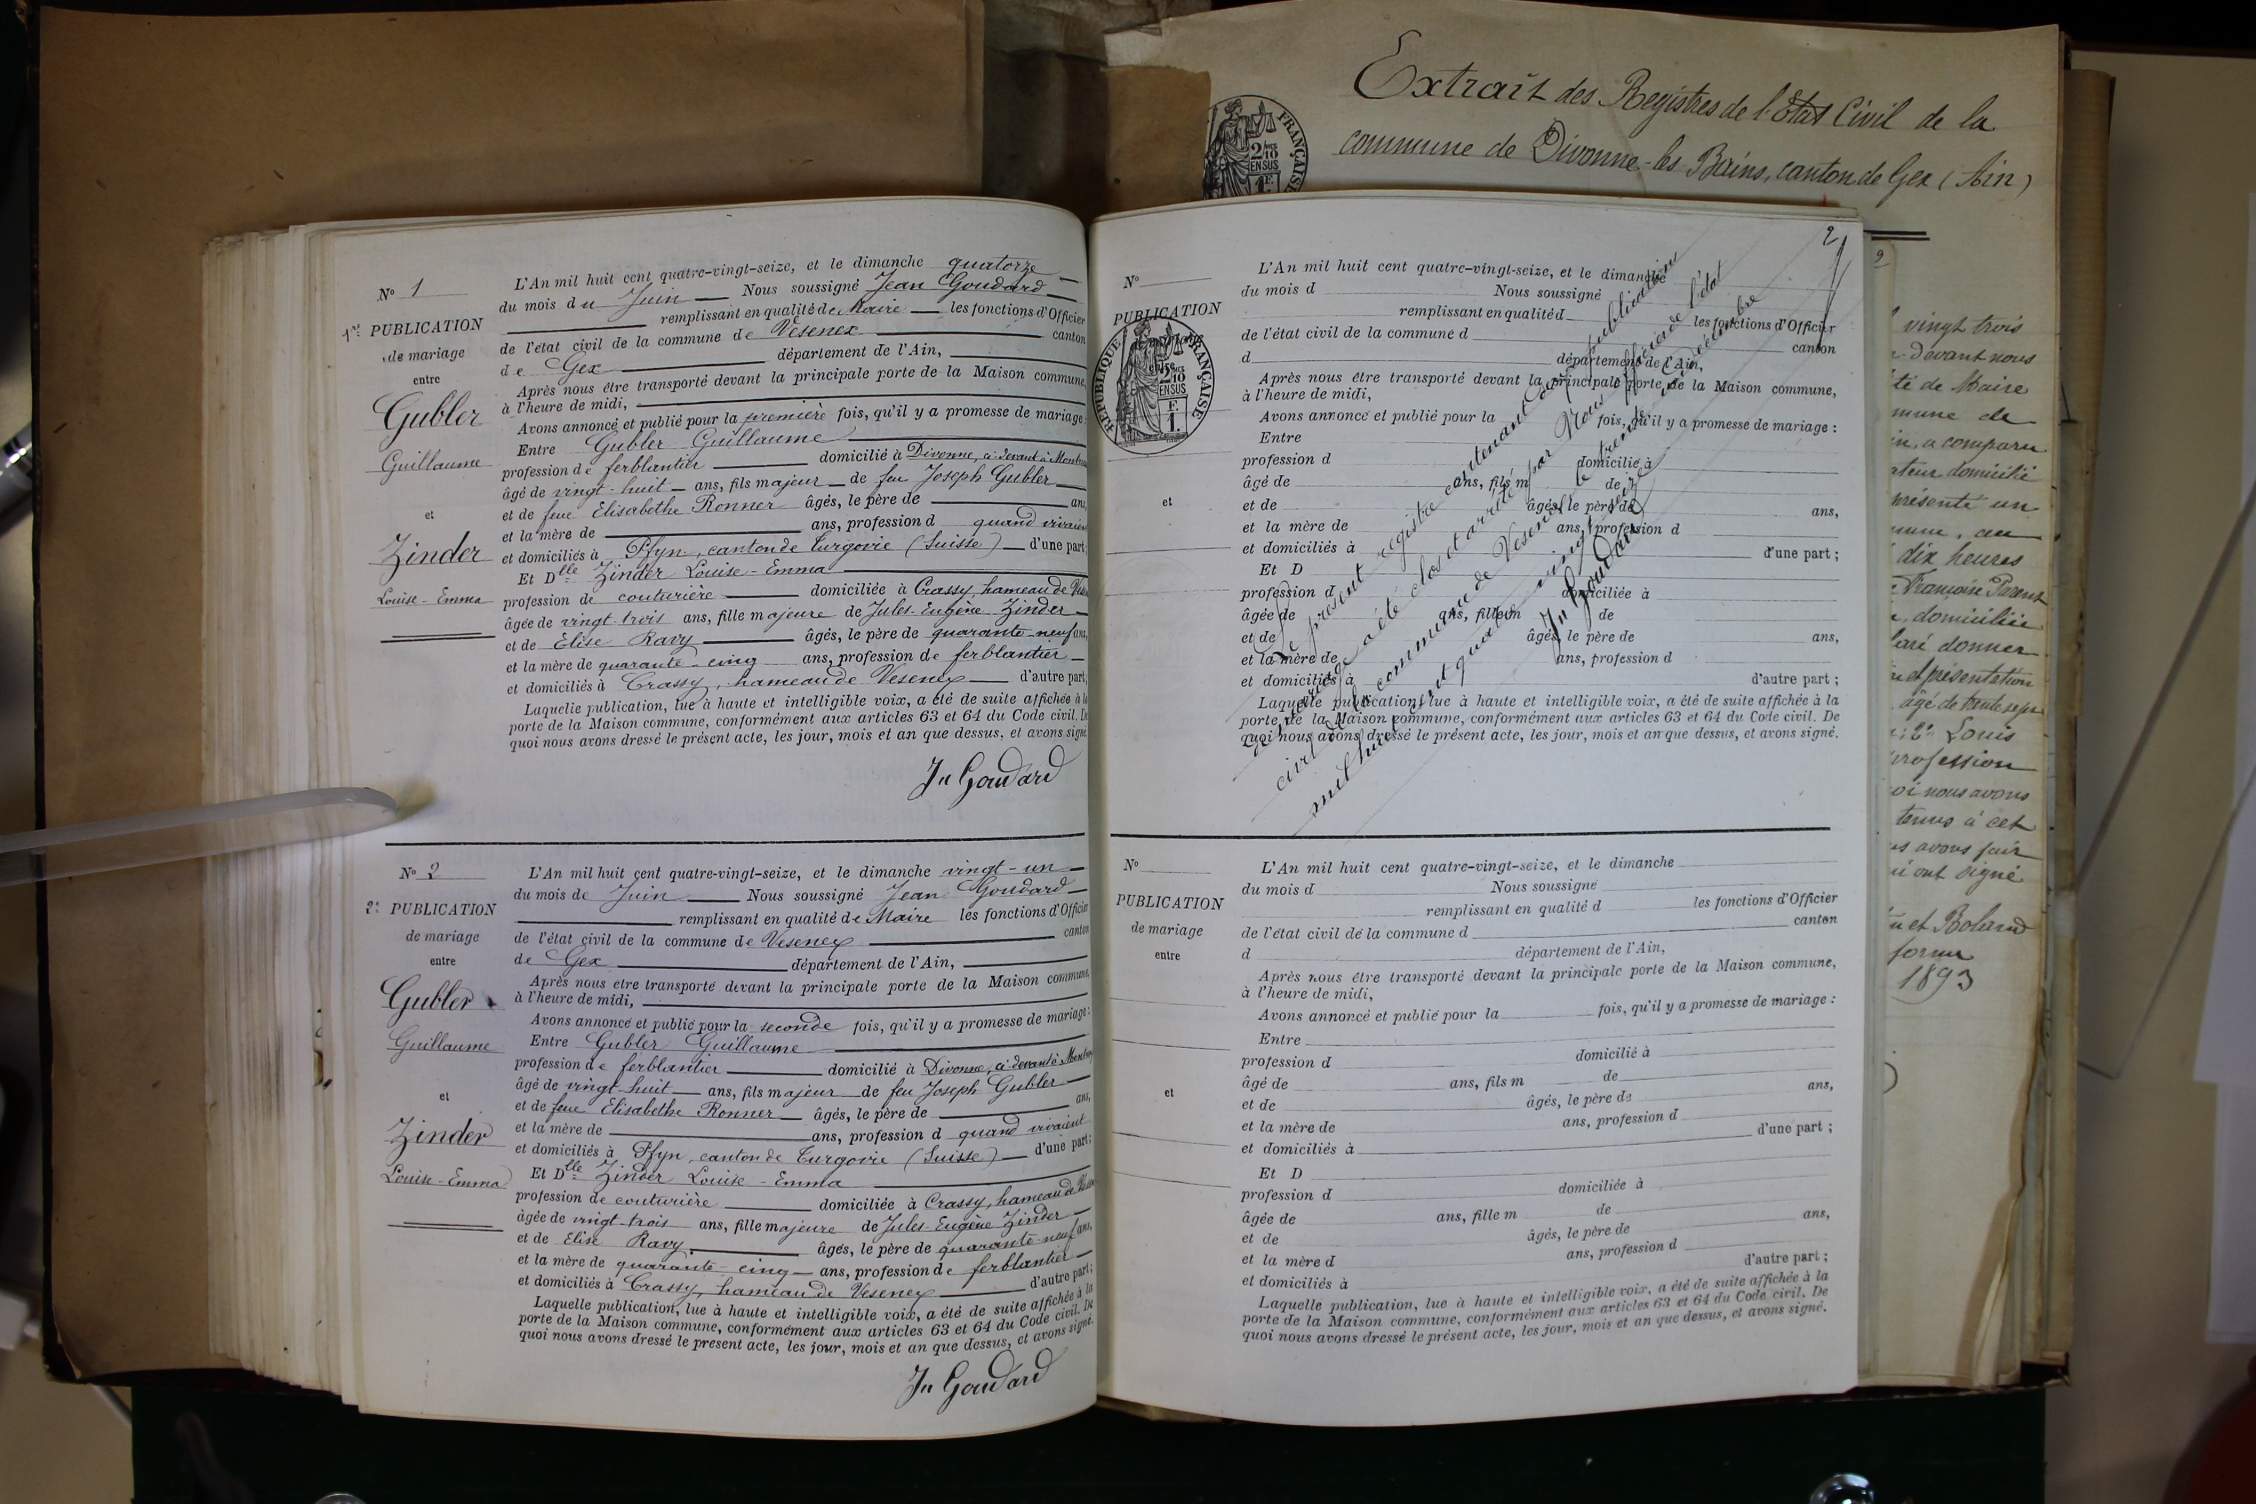 Extrait des Registres de l'État Civil de la
commune de Divonne-les-Bains, canton de Gex (Ain)
Nº 1
1re PUBLICATION
de mariage
entre
Gubler
Guillaume
et
Zinder
Louise-Emma
L'An mil huit cent quatre-vingt-seize, et le dimanche quatorze
du mois du Juin Nous soussigné Jean Goudard
remplissant en qualité de Maire les fonctions d'Officier
de l'état civil de la commune de Vesenex canton
de Gex département de l'Ain,
Après nous être transporté devant la principale porte de la Maison commune,
à l'heure de midi,
Avons annoncé et publié pour la première fois, qu'il y a promesse de mariage :
Entre Gubler Guillaume
profession de ferblantier domicilié à Divonne, ci-devant à
âgé de vingt-huit ans, fils majeur de feu Joseph Gubler
et de feue Elisabethe Ronner âgés, le père de ans,
et la mère de ans, profession d quand vivaient
et domiciliés à Pfyn, canton de Turgovie (Suisse) d'une part;
Et Dlle Zinder Louise-Emma
profession de couturière domiciliée à Crassy, hameau de
âgée de vingt-trois ans, fille majeure de Jules-Eugène Zinder
et de Elise Ravy âgés, le père de quarante-neuf ans,
et la mère de quarante-cinq ans, profession de ferblantier
et domiciliés à Crassy, hameau de Vesenex d'autre part;
Laquelle publication, lue à haute et intelligible voix, a été de suite affichée à la
porte de la Maison commune, conformément aux articles 63 et 64 du Code civil. De
quoi nous avons dressé le présent acte, les jour, mois et an que dessus, et avons signé.
Jn Goudard
Nº 2
2e PUBLICATION
de mariage
entre
Gubler
Guillaume
et
Zinder
Louise-Emma
L'An mil huit cent quatre-vingt-seize, et le dimanche vingt-un
du mois de Juin Nous soussigné Jean Goudard
remplissant en qualité de Maire les fonctions d'Officier
de l'état civil de la commune de Vesenex canton
de Gex département de l'Ain,
Après nous être transporté devant la principale porte de la Maison commune,
à l'heure de midi,
Avons annoncé et publié pour la seconde fois, qu'il y a promesse de mariage :
Entre Gubler Guillaume
profession de ferblantier domicilié à Divonne, ci-devant à
âgé de vingt-huit ans, fils majeur de feu Joseph Gubler
et de feue Elisabethe Ronner âgés, le père de ans,
et la mère de ans, profession d quand vivaient
et domiciliés à Pfyn, canton de Turgovie (Suisse) d'une part;
Et Dlle Zinder Louise-Emma
profession de couturière domiciliée à Crassy, hameau de
âgée de vingt-trois ans, fille majeure de Jules-Eugène Zinder
et de Elise Ravy. âgés, le père de quarante-neuf ans,
et la mère de quarante-cinq ans, profession de ferblantier
et domiciliés à Crassy, hameau de Vesenex d'autre part;
Laquelle publication, lue à haute et intelligible voix, a été de suite affichée à la
porte de la Maison commune, conformément aux articles 63 et 64 du Code civil. De
quoi nous avons dressé le présent acte, les jour, mois et an que dessus, et avons signé.
Jn Goudard
2
Nº
PUBLICATION
RÉPUBLIQUE FRANÇAISE
2/10
EN SUS
1F.
et
L'An mil huit cent quatre-vingt-seize, et le dimanche
du mois d Nous soussigné
remplissant en qualité d les fonctions d'Officier
de l'état civil de la commune d canton
d département de l'Ain,
Après nous être transporté devant la principale porte de la Maison commune,
à l'heure de midi,
Avons annoncé et publié pour la fois, qu'il y a promesse de mariage :
Entre
profession d domicilié à
âgé de ans, fils m de
et de âgés, le père de ans,
et la mère de ans, profession d
et domiciliés à d'une part ;
Et D
profession d domiciliée à
âgée de ans, fille m de
et de âgés, le père de ans,
et la mère de ans, profession d
et domiciliés à d'autre part ;
Laquelle publication, lue à haute et intelligible voix, a été de suite affichée à la
porte de la Maison commune, conformément aux articles 63 et 64 du Code civil. De
quoi nous avons dressé le présent acte, les jour, mois et an que dessus, et avons signé.
Le présent registre contenant deux publications
de mariage a été clos et arrêté par Nous officier de l'état
civil de la commune de Vesenex le trente un décembre
mil huit cent quatre vingt seize
Jn Goudard
Nº
PUBLICATION
de mariage
entre
et
L'An mil huit cent quatre-vingt-seize, et le dimanche
du mois d Nous soussigné
remplissant en qualité d les fonctions d'Officier
de l'état civil de la commune d canton
d département de l'Ain,
Après nous être transporté devant la principale porte de la Maison commune,
à l'heure de midi,
Avons annoncé et publié pour la fois, qu'il y a promesse de mariage :
Entre
profession d domicilié à
âgé de ans, fils m de
et de âgés, le père de ans,
et la mère de ans, profession d
et domiciliés à d'une part ;
Et D
profession d domiciliée à
âgée de ans, fille m de
et de âgés, le père de ans,
et la mère d ans, profession d
et domiciliés à d'autre part ;
Laquelle publication, lue à haute et intelligible voix, a été de suite affichée à la
porte de la Maison commune, conformément aux articles 63 et 64 du Code civil. De
quoi nous avons dressé le présent acte, les jour, mois et an que dessus, et avons signé.
vingt trois
devant nous
té de Maire
mune de
a comparu
domicilié
présenté un
dix heures
Françoise Parent
domiciliée
laré donner
et présentation
âgé de trente sept
2° Louis
profession
oi nous avons
tenus à cet
avons fait
ont signé
et Roland
1893